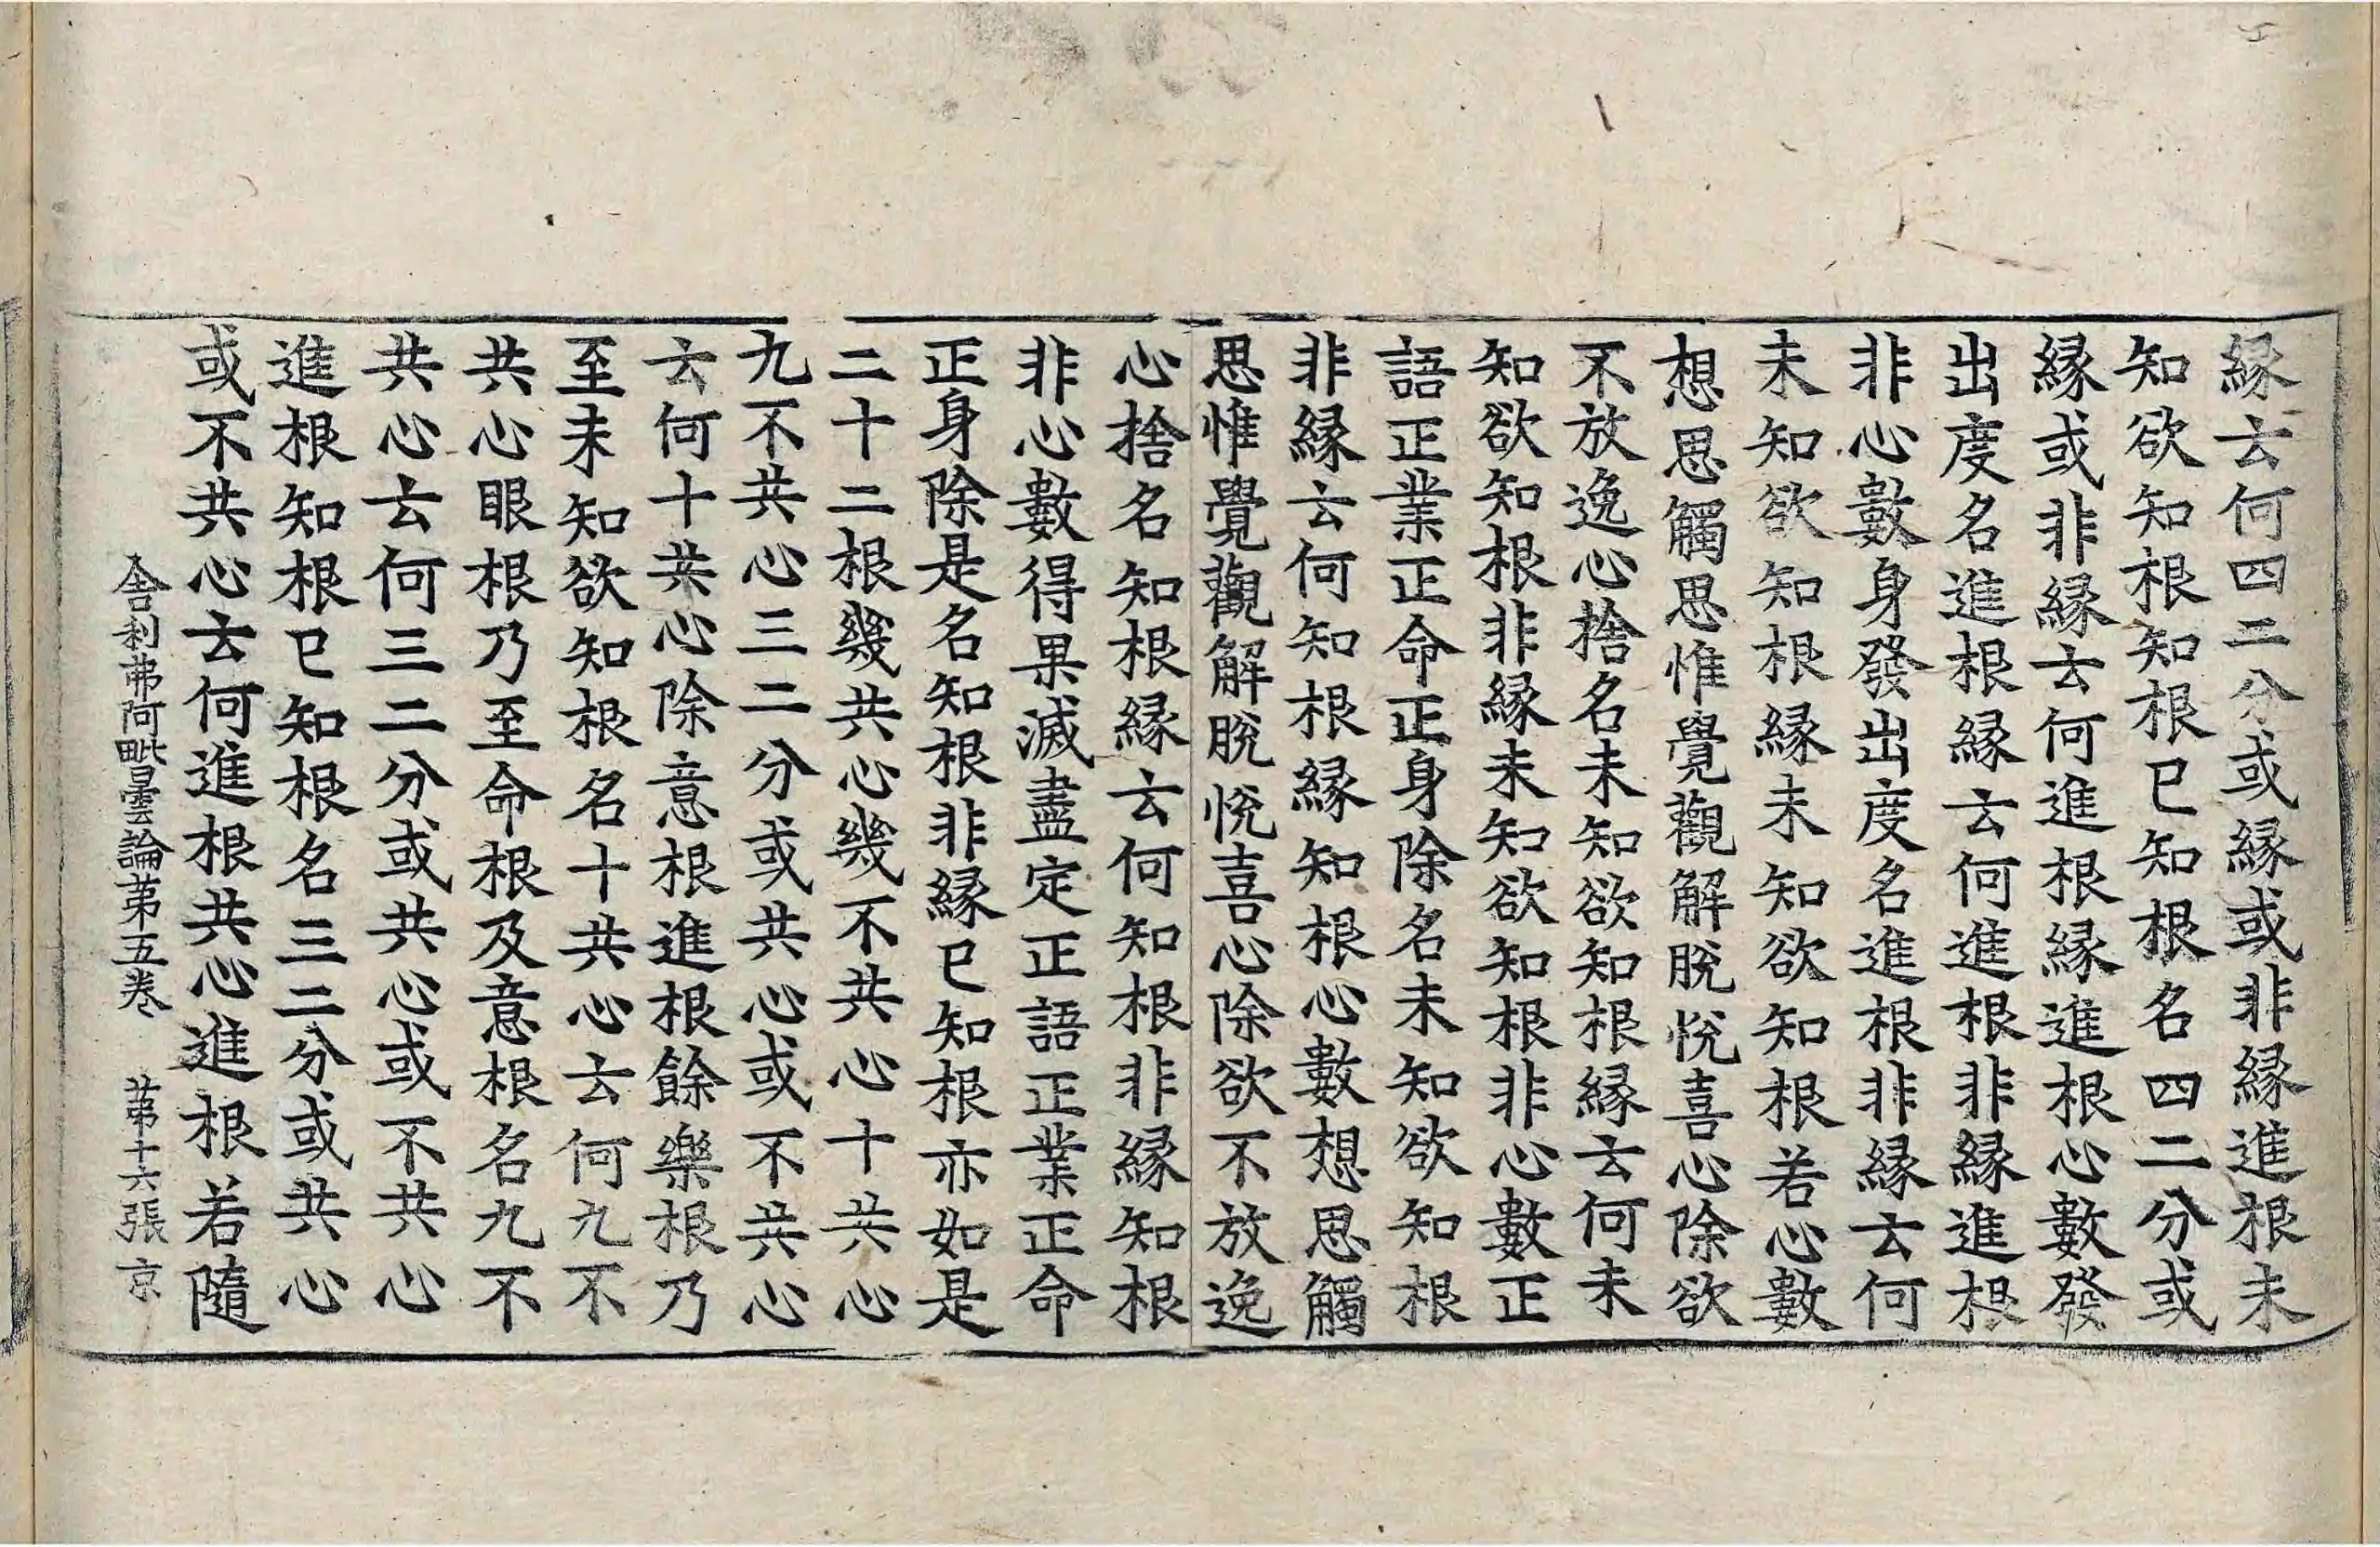 縁云何四二分或縁或非縁進根未
知欲知根知根已知根名四二分或
縁或非縁云何進根縁進根心數發
出度名進根縁云何進根非縁進根
非心數身發出度名進根非縁云何
未知欲知根縁未知欲知根若心數
想思觸思惟覺觀解脫悅喜心除欲
不放逸心捨名未知欲知根縁云何未
知欲知根非縁未知欲知根非心數正
語正業正命正身除名未知欲知根
非縁云何知根縁知根心數想思觸
思惟覺觀解脫悅喜心除欲不放逸
心捨名知根縁云何知根非縁知根
非心數得果滅盡定正語正業正命
正身除是名知根非縁已知根亦如是
二十二根幾共心幾不共心十共心
九不共心三二分或共心或不共心
云何十共心除意根進根餘樂根乃
至未知欲知根名十共心云何九不
共心眼根乃至命根及意根名九不
共心云何三二分或共心或不共心
進根知根已知根名三二分或共心
或不共心云何進根共心進根若隨
舍利弗阿毗曇論第五卷 第十六張 京